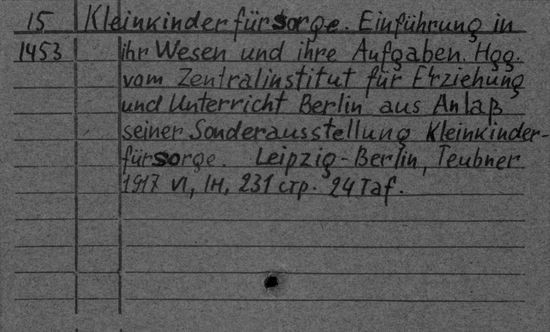 15 Kleinkinderfürsorge. Einführung in
1453 ihr Wesen und ihre Aufgaben. Hgg.
vom Zentralinstitut für Erziehung
und Unterricht Berlin aus Anlaß
seiner Sonderausstellung Kleinkinder-
fürsorge. Leipzig-Berlin, Teubner
1917 VI, IH, 231 стр. 24 Taf.